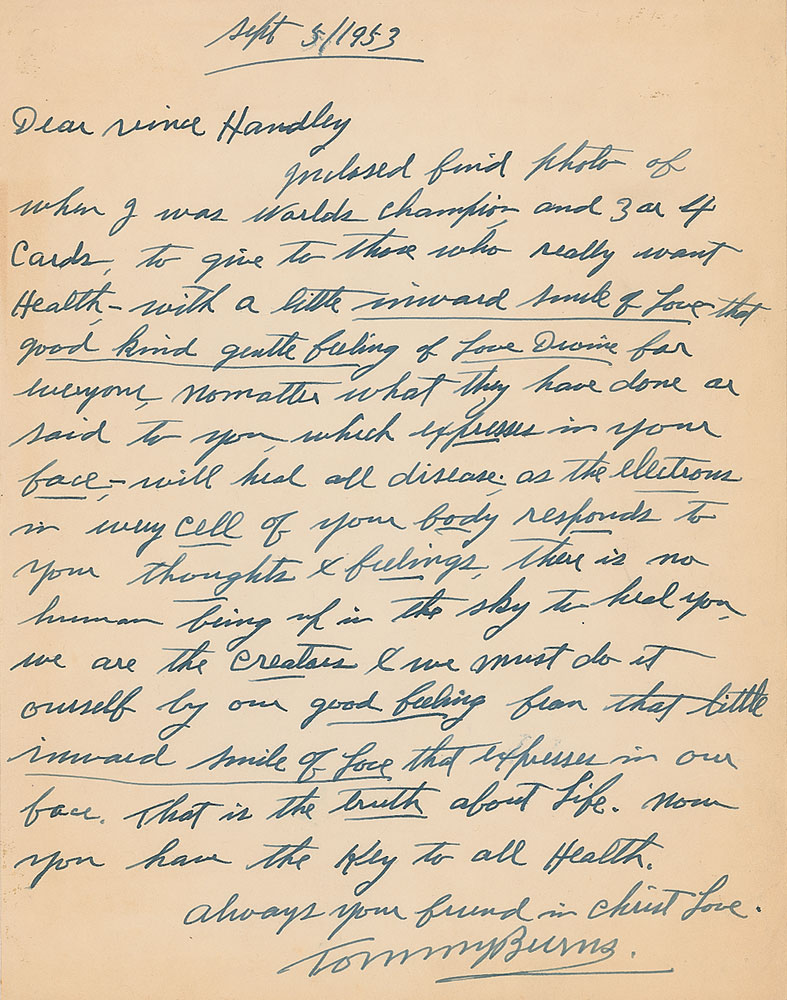 Sept 5/1953
Dear Vince Handley
Inclosed find photo of
when I was Worlds champion and 3 or 4
Cards, to give to those who really want
Health, - with a little inward smile of Love that
good kind gentle feeling of Love Divine for
everyone, nomatter what they have done or
said to you, which expresses in your
face, - will heal all disease; as the electrons
in every cell of your body responds to
your thoughts & feelings, there is no
human being up in the sky to heal you,
we are the creators & we must do it
ourself by our good feeling from that little
inward smile of Love that expresses in our
face. That is the truth about Life. Now
you have the Key to all Health.
always your friend in Christ Love.
Tommy Burns.